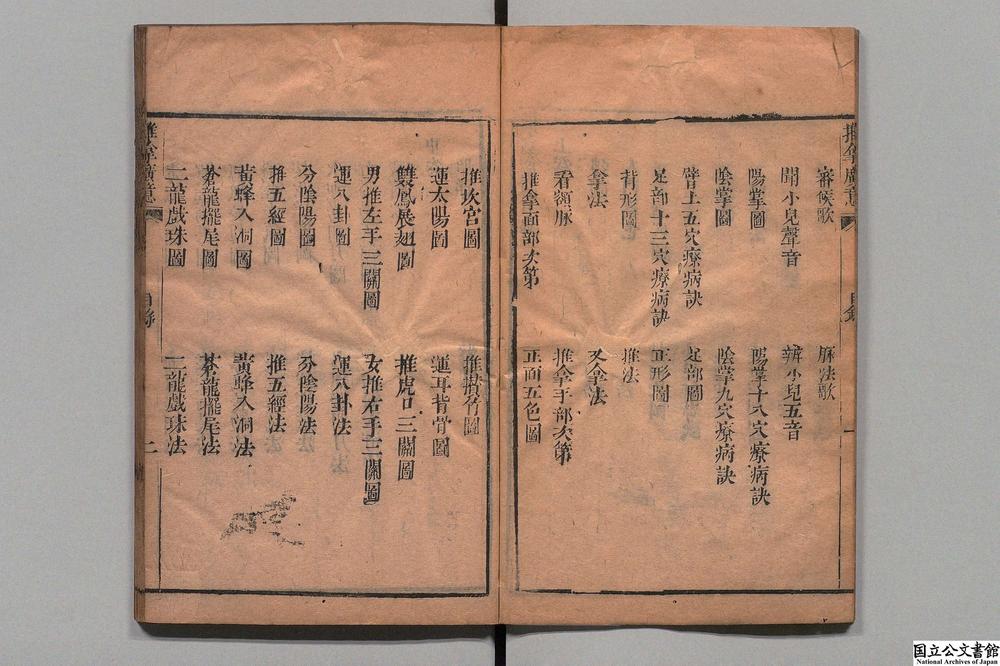 推拿廣意
目錄
審候歌 脉法歌
聞小兒聲音 辨小兒五音
陽掌圖 陽掌十八穴療病訣
陰掌圖 陰掌九穴療病訣
臂上五穴療病訣 足部圖
足部十三穴療病訣 正形圖
背形圖 推法
拿法 又拿法
看額脉 推拿手部次第
推拿面部次第 正面五色圖
推坎宮圖 推攢竹圖
運太陽圖 運耳背骨圖
雙鳳展翅圖 推虎口三關圖
男推左手三關圖 女推右手三關圖
運八卦圖 運八卦法
分陰陽圖 分陰陽法
推五經圖 推五經法
黃蜂入洞圖 黃蜂入洞法
蒼龍擺尾圖 蒼龍擺尾法
二龍戲珠圖 二龍戲珠法
推拿廣意
目錄
二
国立公文書館
National Archives of Japan